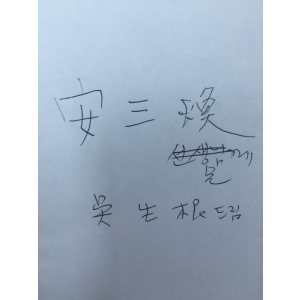 安三煥
吳生根 드림